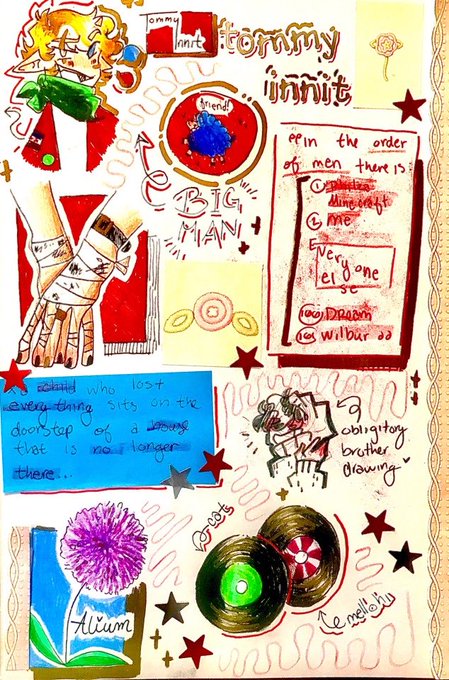 Tommy
Innit
tommy
innit
friend!
BIG
MAN
in the order
of men there is:
① philza
Minecraft
② me
Everyone
else
Dream
wilbur
child who lost
everything sits on the
doorstep of a house
that is no longer
there..
obligitory
brother
drawing
cat
mellohi
Alium